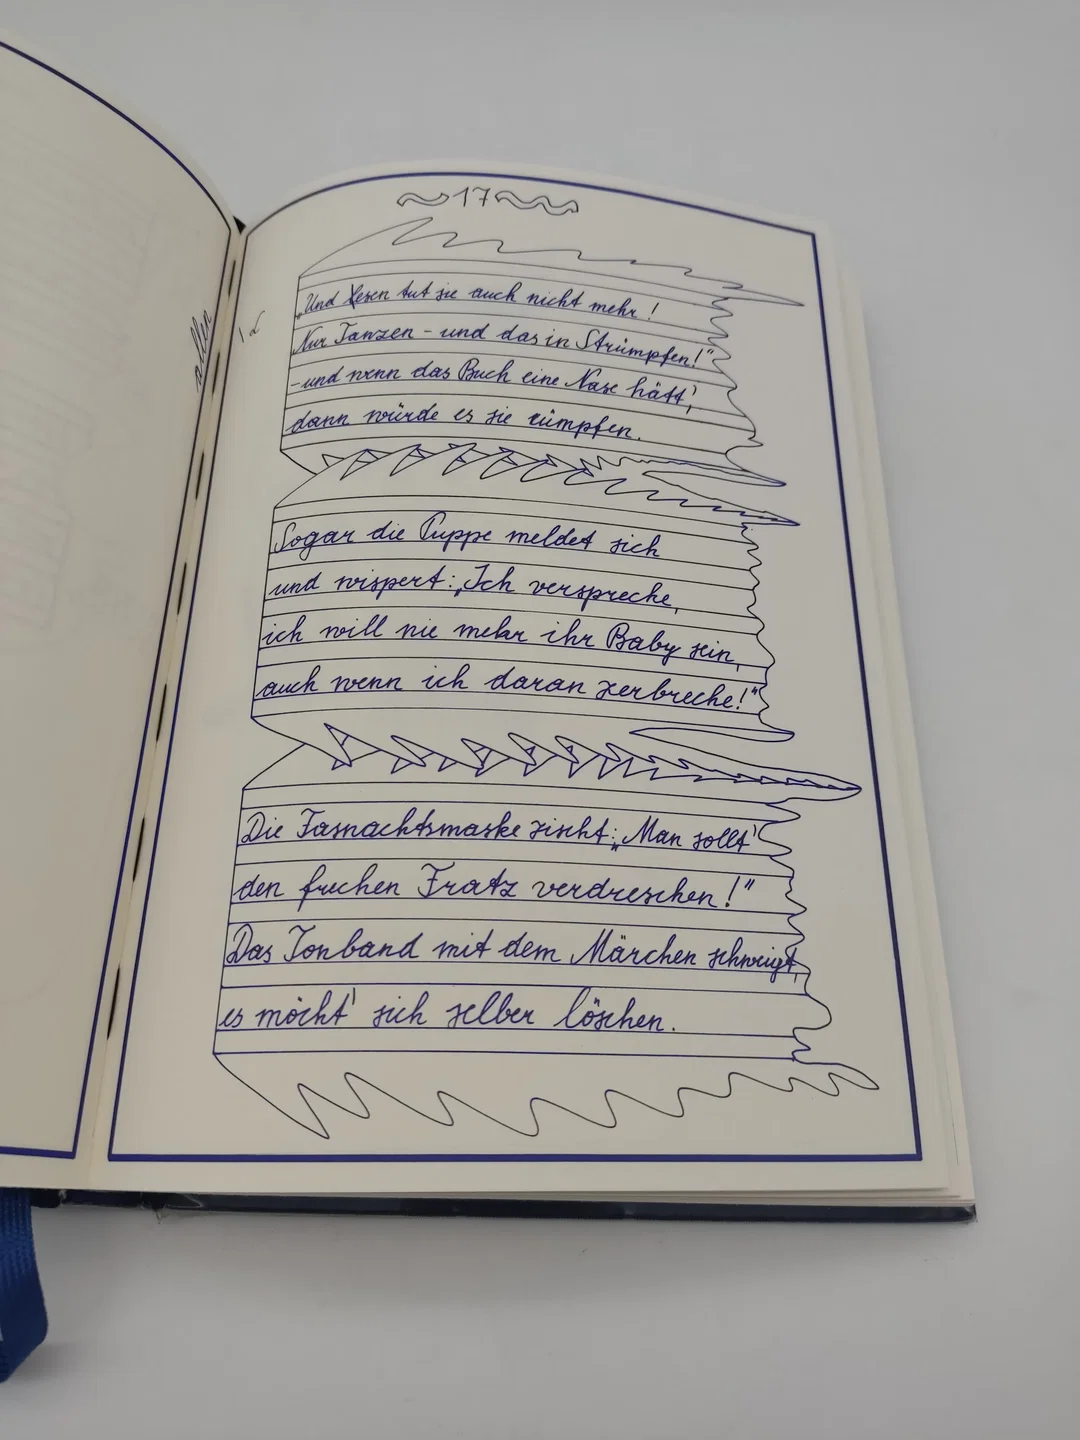 17
allen
„Und lesen tut sie auch nicht mehr!
Nur Tanzen - und das in Strümpfen!"
- und wenn das Buch eine Nase hätt',
dann würde es sie rümpfen.
Sogar die Puppe meldet sich
und wispert: „Ich verspreche,
ich will nie mehr ihr Baby sein,
auch wenn ich daran zerbreche!"
Die Fasnachtsmaske zischt: „Man sollt'
den frechen Fratz verdreschen!"
Das Tonband mit dem Märchen schweigt,
es möcht' sich selber löschen.